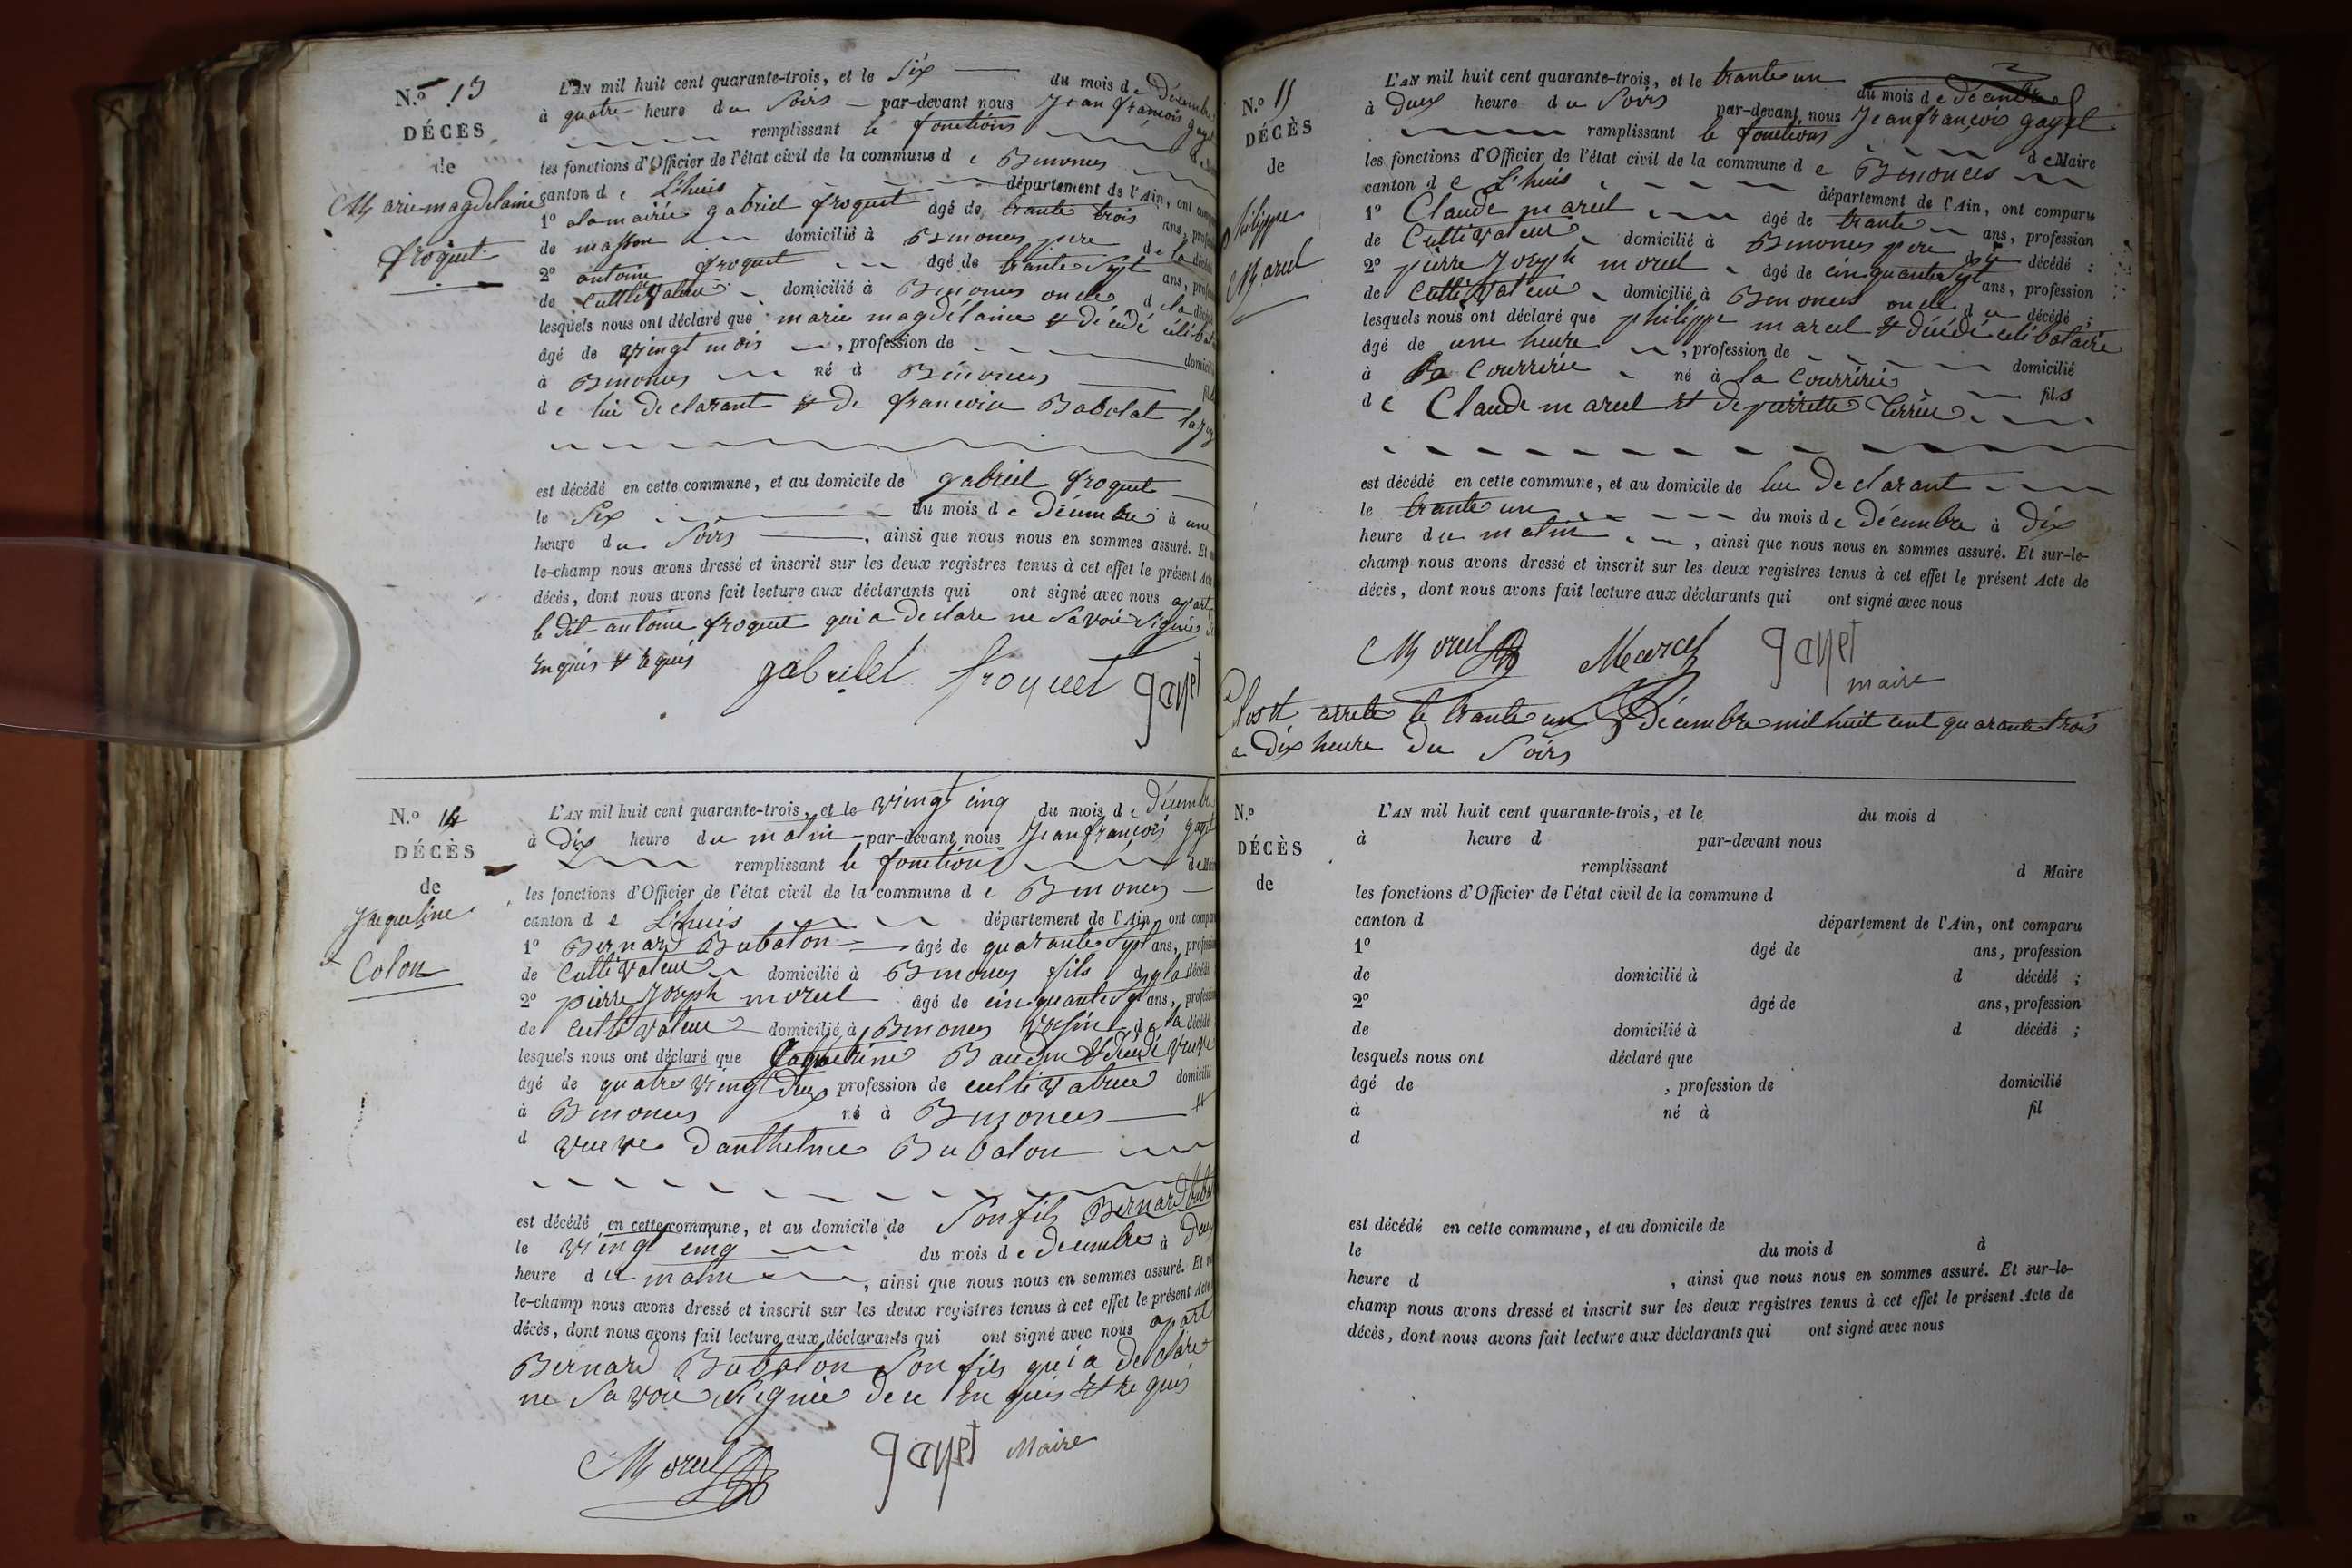 N.o 13
DÉCÈS
de
Marie magdelaine
froquet
L'AN mil huit cent quarante-trois, et le Six du mois de Décembre
à quatre heure du Soirs par-devant nous Jean françois gayet
remplissant le fonctions de
les fonctions d'Officier de l'état civil de la commune de Benonces
canton de L'huis département de l'Ain, ont
1o alamairie gabriel froquet âgé de trante trois ans,
de masson domicilié à Benonces pere de la
2o antoine froquet âgé de trante Sept ans,
de Cultivateur domicilié à Benonces oncle de la
lesquels nous ont déclaré que marie magdelaine et décédé
âgé de vingt mois , profession de
à Benonces né à Benonces
de lui declarant et de
est décédé en cette commune, et au domicile de gabriel froquet
le Six du mois de Décembre à une
heure du Soirs , ainsi que nous nous en sommes assuré. Et
le-champ nous avons dressé et inscrit sur les deux registres tenus à cet effet le présent Acte
décès, dont nous avons fait lecture aux déclarants qui ont signé avec nous apart
le dit antoine froquet qui a declare ne Savoir Signie
Enquis et Requis
gabriel froquet gayet
N.o 14
DÉCÈS
de
Jaqueline
Colon
L'AN mil huit cent quarante-trois, et le vingt cinq du mois de Décembre
à Dix heure du matin par-devant nous Jean françois gayet
remplissant le fonctions de
les fonctions d'Officier de l'état civil de la commune de Benonces
canton de L'huis département de l'Ain, ont
1o Bernard Bubaton âgé de quarante Sept ans,
de Cultivateur domicilié à Benonces fils de la décédé
2o pierre Joseph morel âgé de cinquante Sept ans,
de Cultivateur domicilié à Benonces voisin de la décédé
lesquels nous ont déclaré que décédé veuve
âgé de quatre vingt Deux profession de cultivatrice domicilié
à Benonces né à Benonces fil
d veuve Danthelme Bubaton
est décédé en cette commune, et au domicile de Son fils Bernard
le vingt cinq du mois de decembre à Deux
heure du matin , ainsi que nous nous en sommes assuré. Et
le-champ nous avons dressé et inscrit sur les deux registres tenus à cet effet le présent Acte
décès, dont nous avons fait lecture aux déclarants qui ont signé avec nous apart
Bernard Bubaton Son fils qui a declare
ne Savoir Signie de ce Enquis et Requis
Morel gayet Maire
N.o 15
DÉCÈS
de
Philippe
Marcel
L'AN mil huit cent quarante-trois, et le trante un du mois de Decembre
à Deux heure du Soirs par-devant nous Jean françois gayet
remplissant le fonctions de Maire
les fonctions d'Officier de l'état civil de la commune de Benonces
canton de L'huis département de l'Ain, ont comparu
1o Claude marcel âgé de trante ans, profession
de Cultivateur domicilié à Benonces pere du décédé ;
2o pierre Joseph morel âgé de cinquante Sept ans, profession
de Cultivateur domicilié à Benonces oncle du décédé ;
lesquels nous ont déclaré que philippe marcel et décédé celibataire
âgé de une heure , profession de domicilié
à la Courrerie né à la Courrerie fils
de Claude marcel et de pierrette
est décédé en cette commune, et au domicile de lui Declarant
le trante un du mois de Décembre à Dix
heure du matin , ainsi que nous nous en sommes assuré. Et sur-le-
champ nous avons dressé et inscrit sur les deux registres tenus à cet effet le présent Acte de
décès, dont nous avons fait lecture aux déclarants qui ont signé avec nous
Morel Marcel gayet
maire
Clos et arrete le trante un Décembre mil huit cent quarante trois
a Dix heure Du Soirs
N.o
DÉCÈS
de
L'AN mil huit cent quarante-trois, et le du mois d
à heure d par-devant nous
remplissant d Maire
les fonctions d'Officier de l'état civil de la commune d
canton d département de l'Ain, ont comparu
1o âgé de ans, profession
de domicilié à d décédé ;
2o âgé de ans, profession
de domicilié à d décédé ;
lesquels nous ont déclaré que
âgé de , profession de domicilié
à né à fil
d
est décédé en cette commune, et au domicile de
le du mois d à
heure d , ainsi que nous nous en sommes assuré. Et sur-le-
champ nous avons dressé et inscrit sur les deux registres tenus à cet effet le présent Acte de
décès, dont nous avons fait lecture aux déclarants qui ont signé avec nous